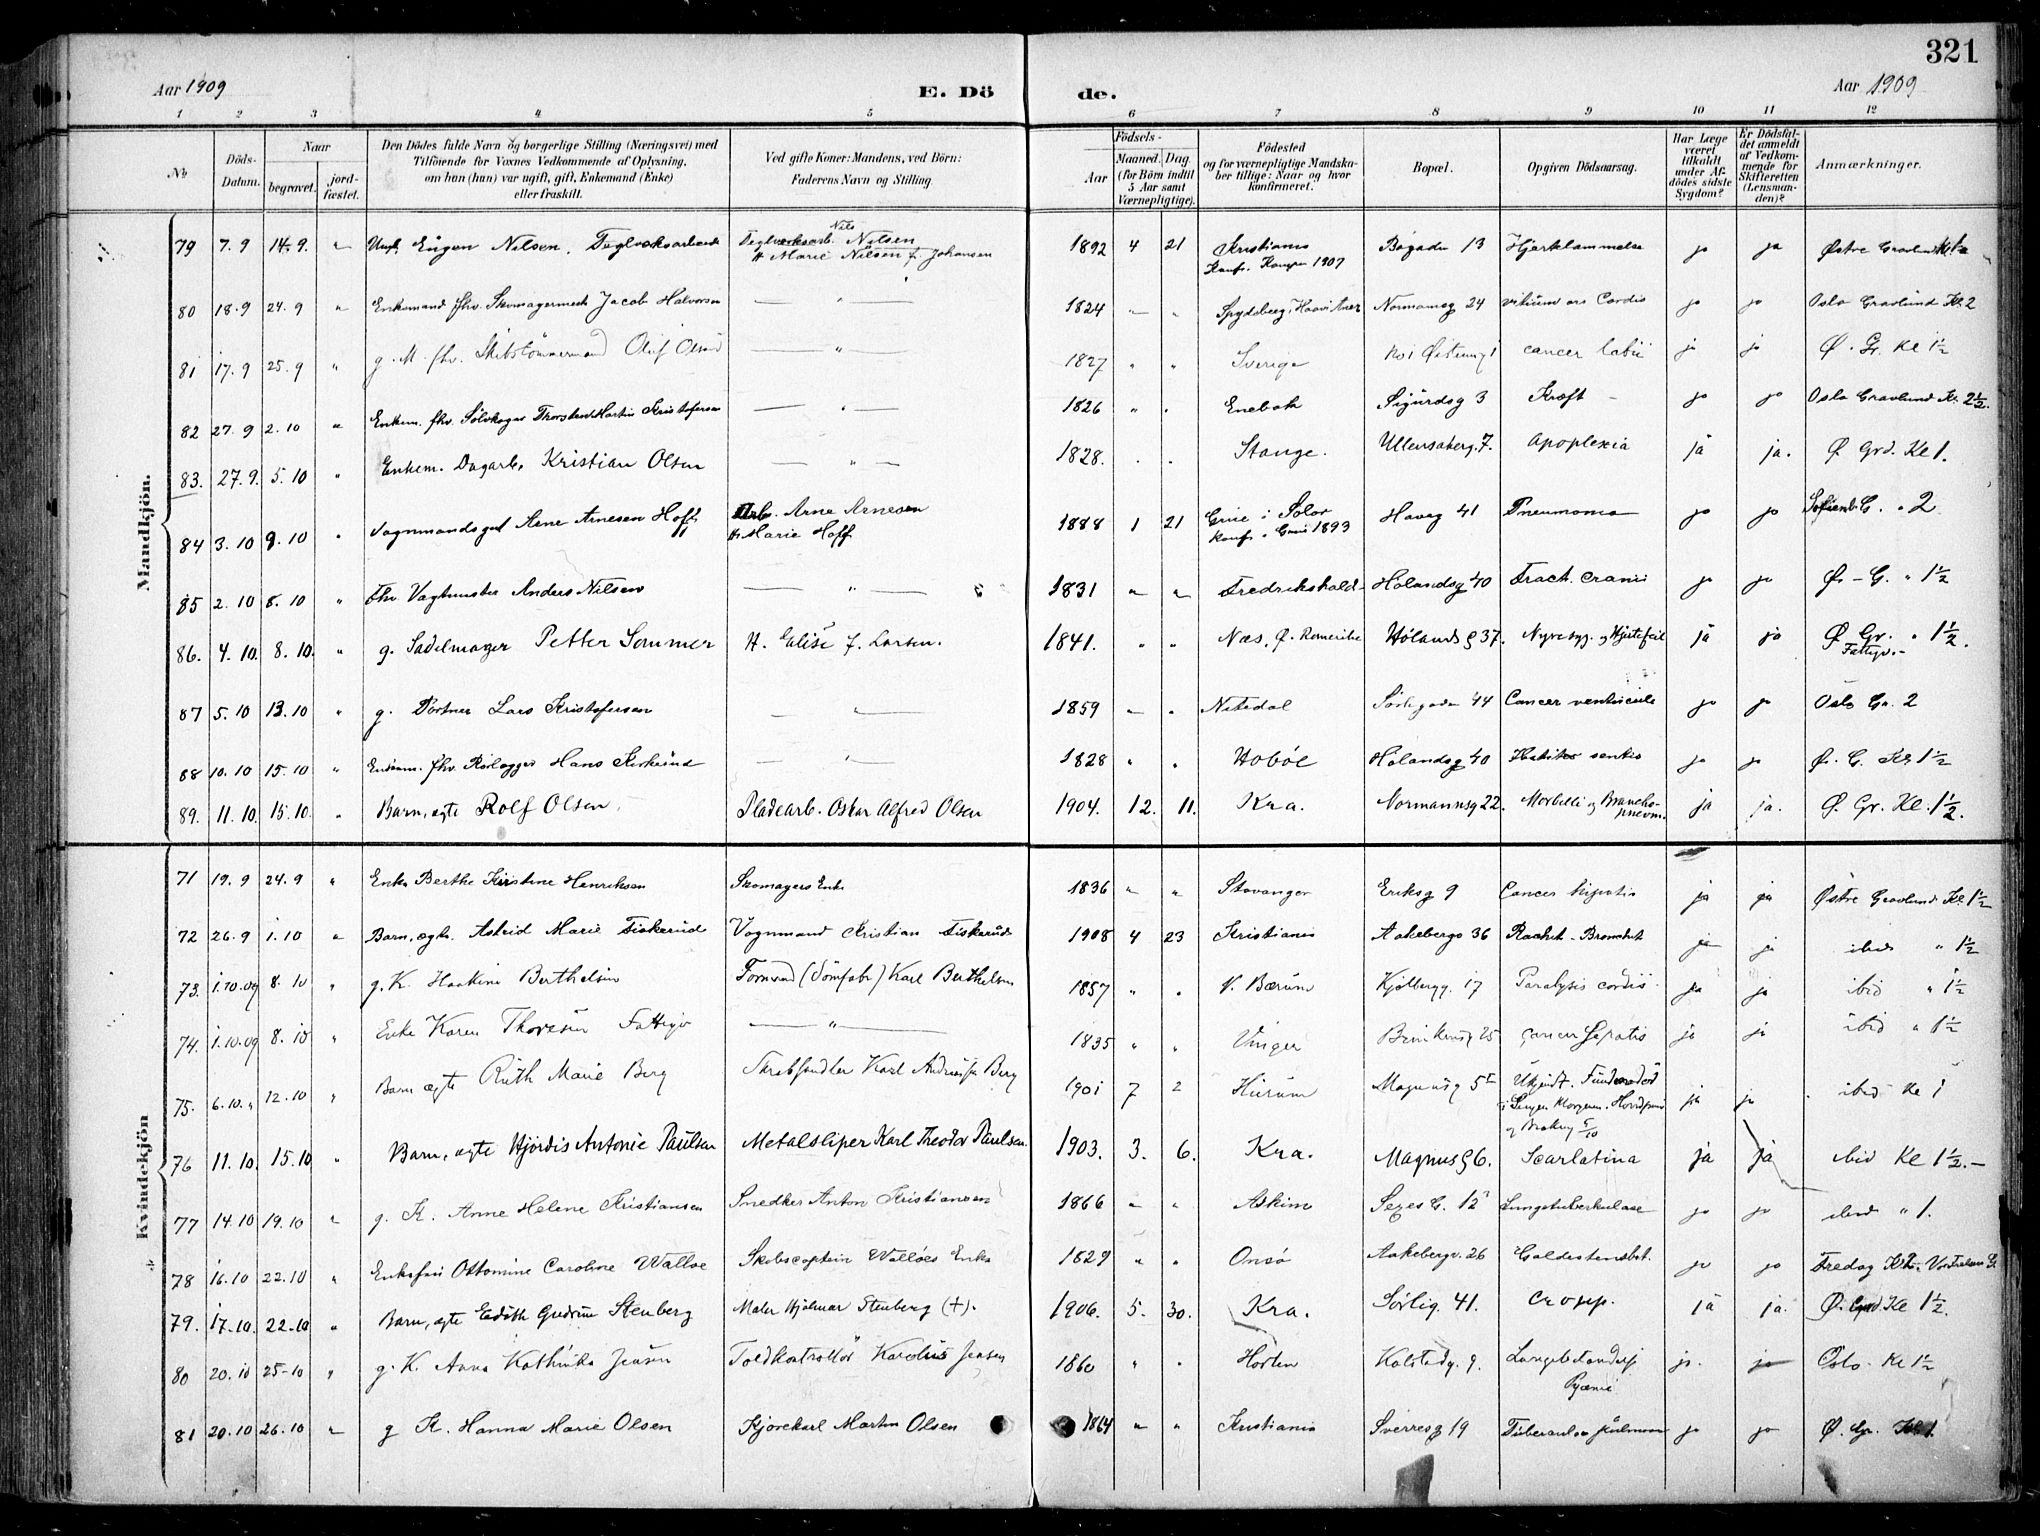 321
Aar 1909 E. Dö de. Aar 1909
1 2 3 4 5 6 7 8 9 10 11 12
№ Döds-Datum. Naar begravet. jordfæstet. Den Dödes fulde Navn og borgerlige Stilling (Næringsvei) med Tilföiende for Voxnes Vedkommende af Oplysning, om han (hun) var ugift, gift, Enkemand (Enke) eller fraskilt. Ved gifte Koner: Mandens, ved Börn: Faderens Navn og Stilling. Födsels- Aar Maaned. Dag (for Börn indtil 5 Aar samt Værnepligtige). Födested og for værnepligtige Mandskaber tillige: Naar og hvor konfirmeret. Bopæl. Opgiven Dödsaarsag. Har Læge været tilkaldt under Afdödes sidste Sygdom? Er Dödsfaldet anmeldt af Vedkommende for Skifteretten (Lensmanden)? Anmærkninger.
Mandkjön.
79 7.9 14.9. " Eugen Nilsen. Nils Nilsen H Marie Nilsen f. Johansen 1892 4 21 Kristiania Konf. Kampen 1907 13 Hjerteslammelse jo ja Østre Gravlund
80 18.9 24.9 " Enkemand fhv. Skomagermester Jacob Halvorsen — " — 1824 " " Spydeberg Normannsg 24 vitium org Cordis jo jo Oslo Gravlund Kl. 2
81 17.9 25.9 " g. M. fhv. Skibstömmermand Oluf Olsen — " — 1827 " " Sverige cancer labii ja ja Ø. Gr. Kl 1½
82 27.9 2.10 " Enkem. fhv. Thorsten Martin Kristofersen — " — 1826 " " Enebak Sigurdsg 3 Kræft jo jo Oslo Gravlund Kl. 2½.
83. 27.9. 5.10 " Enkem. Dagarb. Kristian Olsen — " — 1828. " " Stange. Ullensakerg. 7. Apoplexia ja ja. Ø Grd. Kl 1.
84 3.10 9.10 " Vognmandsgut Arne Arnesen Hoff Arb. Arne Arnesen H. Marie Hoff. 1888 1 21 Grue i Solør Konf. i Grue 1893 Haveg 41 Pneumonia jo jo Sofienb G. " 2
85 2.10 8.10 " Fhv Vagtmester Anders Nilsen — " — 1831 " " Fredrikshald Hølandsg 40 Fract. cranii jo jo Ø. G. " 1½
86. 4.10. 8.10. " g. Sadelmager Petter Sommer H. Elise f. Larsen. 1841. " " Næs, Ø. Romerike Hølandsg 37. Nyresyg. og Hjertefeil ja jo Ø Gr. " 1½. Fattigv.-
87 5.10 13.10 " g. Portner Lars Kristofersen — " — 1859 " " Nitedal Sørligaden 44 Cancer ventriculi jo jo Oslo Gr. 2
88 10.10 15.10 " Enkem. fhv. Rørlægger Hans — " — 1828 " " Hobøl Hølandsg 40 jo jo Ø. G. Kl. 1½
89. 11.10. 15.10. " Barn, ægte Rolf Olsen. Pladearb. Oskar Alfred Olsen 1904. 12. 11. Kra. Normannsg 22. Morbilli og Broncho-pneum. ja ja. Ø. Gr. Kl. 1½.
Kvindekjön
71 19.9 24.9 " Enke Berthe Kirstine Henriksen Skomagers Enke 1836 " " Stavanger Eriksg 9 Cancer hepatis ja ja Østre Gravlund Kl. 1½
72 26.9 1.10 " Barn, ægte. Astrid Marie Fiskerud Vognmand Kristian Fiskerud 1908 4 23 Kristiania Aakebergv 36 Rachit. Bronchit ja ja ibid " 1½
73. 1.10.09 8.10 " g. K. Haakine Berthelsen Formand Karl Berthelsen 1857 " " V. Bærum Kjølbergg. 17 Paralysis cordis ja ja ibid " 1½
74. 1.10.09 8.10 " Enke Karen Thoresen Fattigv — " — 1835 " " Vinger 25 Cancer hepatis ja ja ibid " 1½
75. 6.10." 12.10 " Barn ægte Ruth Marie Berg Skrabhandler Karl Andreas Berg 1901 7 2 Hurum Magnusg 5 Ukjendt. Funden død i Sengen og Brækning 5/10 ja ja ibid Kl 1
76 11.10. 15.10 " Barn, ægte Hjørdis Antonie Paulsen Metalsliper Karl Theodor Paulsen. 1903. 3. 6. Kra. Magnusg 6. Scarlatina ja ja ibid Kl 1½.-
77 14.10 19.10 " g. K. Anne Helene Kristiansen Snedker Anton Kristiansen 1866 " " Askim 12 Lungetuberkulose jo jo ibid " 1.
78 16.10 22.10 " Enkefru Ottomine Caroline Walløe Skibscaptein Walløes Enke 1829 " " Onsø Aakebergv. 26 jo jo Fredag Vor Frelsers G.
79. 17.10. 22.10 " Barn, ægte Edith Gudrun Stenberg Maler Hjalmar Stenberg (+). 1906. 5. 30. Kra. Sørlig. 41. Croup. ja ja. Ø. Grd. Kl 1½.
80 20.10 25-10 " g. K. Anna Kathinka Jensen Toldkontrollør Karolus Jensen 1860 " " Horten Kalstadg. 9. Pyæmi ja. ja Oslo. Kl 1½
81 20.10 26.10 " g K. Hanna Marie Olsen Kjørekarl Martin Olsen 1864 " " Kristiania Sverresg 19 Tuberculos pulmon jo jo Ø. Gr. Kl 1.